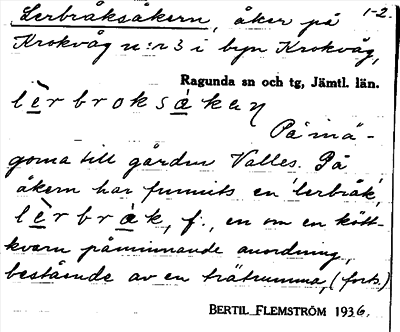 Lerbråksåkern, åker på 1-2.
Krokvåg n:r 3 i byn Krokvåg,
Ragunda sn och tg, Jämtl. län.
lèrbroksåkaṇ
På mä-
gorna till gården Valles. På
åkern har funnits en 'lerbråk',
lèrbråk, f., en om en kött-
kvarn påminnande anordning,
bestående av en trätrumma, (forts.)
BERTIL FLEMSTRÖM 1936.